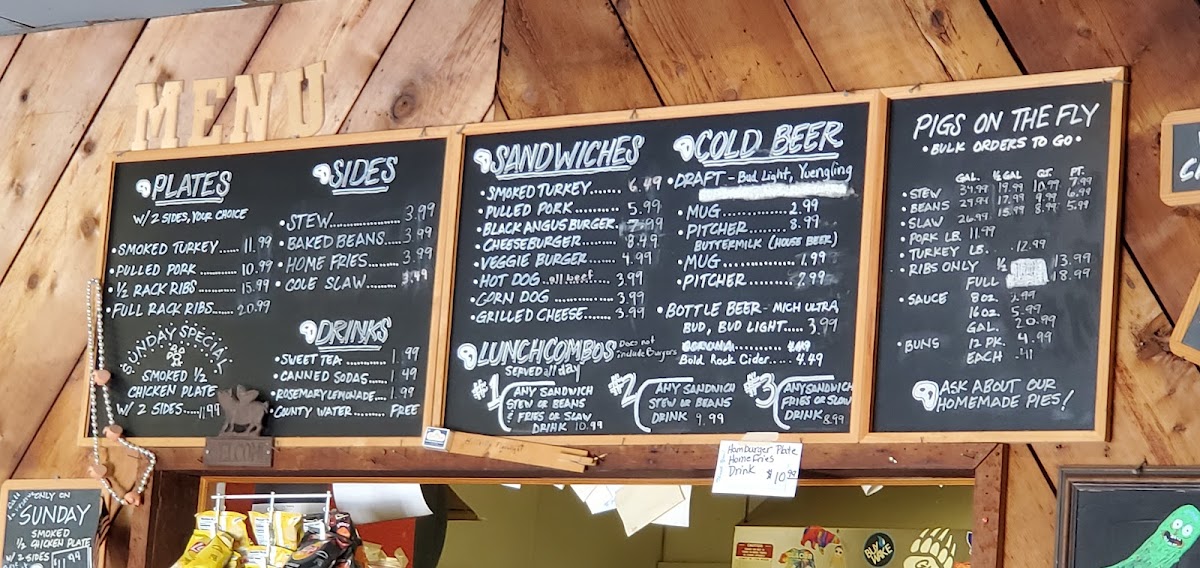 MENU
PLATES
W/ 2 SIDES, YOUR CHOICE
SMOKED TURKEY...... 11.99
PULLED PORK........... 10.99
½ RACK RIBS........... 15.99
FULL RACK RIBS....... 20.99
SUNDAY SPECIAL
SMOKED ½
CHICKEN PLATE
W/ 2 SIDES.... 11.99
SIDES
• STEW............... 3.99
• BAKED BEANS..... 3.99
• HOME FRIES....... 3.99
• COLE SLAW....... 3.49
DRINKS
• SWEET TEA........... 1.99
• CANNED SODAS..... 1.49
• ROSEMARY LEMONADE... 1.99
• COUNTY WATER....... FREE
SANDWICHES
• SMOKED TURKEY....... 6.49
• PULLED PORK.......... 5.99
• BLACK ANGUS BURGER.
• CHEESEBURGER........ 8.49
• VEGGIE BURGER....... 4.99
• HOT DOG..all beef... 3.99
• CORN DOG............ 3.99
• GRILLED CHEESE....... 3.99
LUNCH COMBOS Does not
include Burgers
SERVED all day
#1 ANY SANDWICH
STEW OR BEANS
& FRIES OR SLAW
DRINK 10.99
#2 ANY SANDWICH
STEW OR BEANS
DRINK 9.99
#3 ANY SANDWICH
FRIES OR SLAW
DRINK 8.99
COLD BEER
• DRAFT - Bud Light, Yuengling
• MUG............... 2.99
• PITCHER........... 8.99
BUTTERMILK (HOUSE BEER)
• MUG............... 1.99
• PITCHER........... 7.99
• BOTTLE BEER - MICH ULTRA,
BUD, BUD LIGHT..... 3.99
CORONA............. 4.49
Bold Rock Cider..... 4.49
PIGS ON THE FLY
• BULK ORDERS TO GO •
GAL. ½ GAL QT. PT.
• STEW 34.99 19.99 10.99 7.99
• BEANS 29.99 17.99 9.99 6.99
• SLAW 26.99 15.99 8.99 5.99
• PORK LB. 11.99
• TURKEY LB. . 12.99
• RIBS ONLY ½ 13.99
FULL 18.99
• SAUCE 8 OZ. 3.99
16 OZ. 5.99
GAL. 20.99
• BUNS 12 PK. 4.99
EACH .41
ASK ABOUT OUR
HOMEMADE PIES!
Hamburger Plate
Home Fries
Drink $10.99
WELCOME
ONLY ON
SUNDAY
SMOKED
½ CHICKEN PLATE
W/ 2 SIDES
$11.99
BUY
WAKE